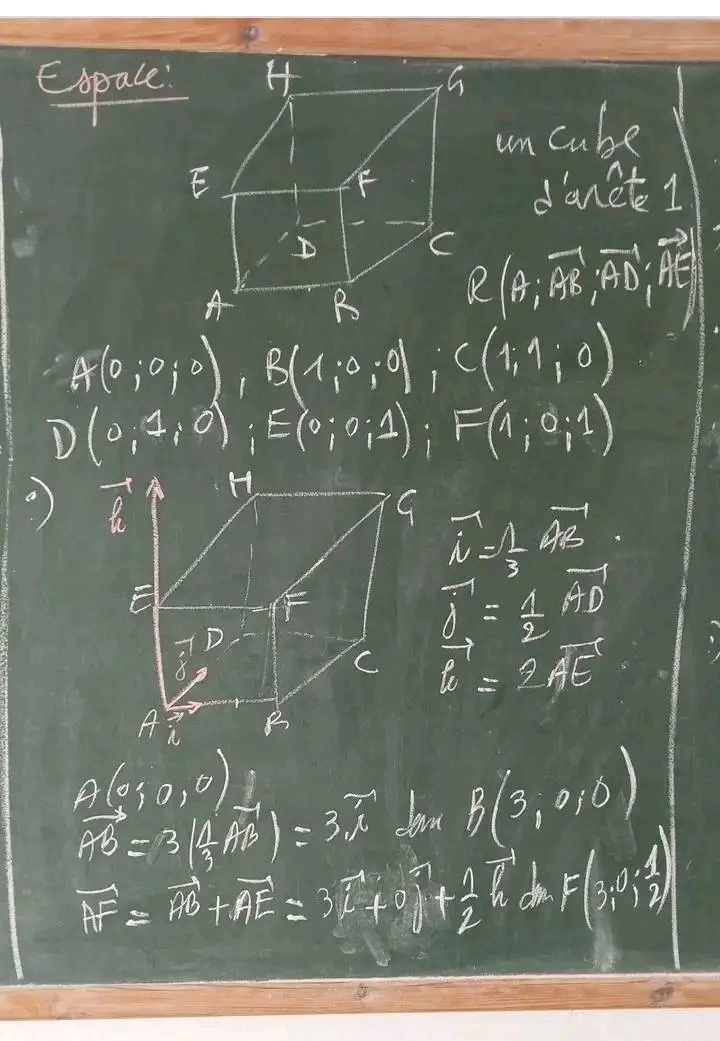 Espace:
H G
E F
D C
A B
un cube
d'arête 1
R(A; \overrightarrow{AB}; \overrightarrow{AD}; \overrightarrow{AE})
A(0;0;0), B(1;0;0); C(1;1;0)
D(0;1;0); E(0;0;1); F(1;0;1)
\vec{k} H G
E F
\vec{j} D C
A \vec{i} B
\vec{i} = \frac{1}{3} \overrightarrow{AB}.
\vec{j} = \frac{1}{2} \overrightarrow{AD}
\vec{k} = 2\overrightarrow{AE}
A(0;0,0)
\overrightarrow{AB} = 3(\frac{1}{3}\overrightarrow{AB}) = 3\vec{i} donc B(3;0;0)
\overrightarrow{AF} = \overrightarrow{AB} + \overrightarrow{AE} = 3\vec{i} + 0\vec{j} + \frac{1}{2}\vec{k} donc F(3;0;\frac{1}{2})